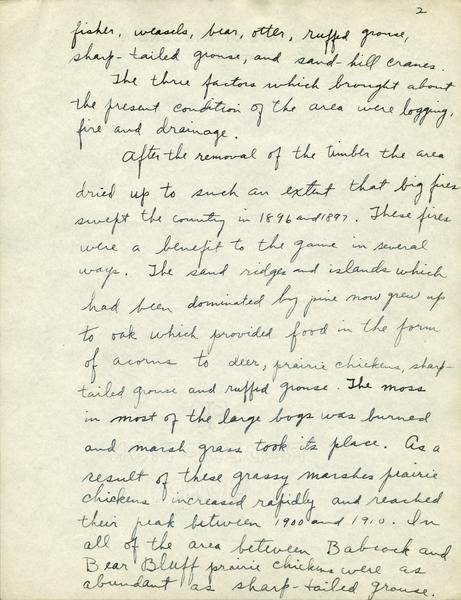 2
fisher, weasels, bear, otter, ruffed grouse,
sharp-tailed grouse, and sand-hill cranes.
The three factors which brought about
the present condition of the area were logging,
fire and drainage.
After the removal of the timber the area
dried up to such an extent that big fires
swept the country in 1896 and 1897. These fires
were a benefit to the game in several
ways. The sand ridges and islands which
had been dominated by pine now grew up
to oak which provided food in the form
of acorns to deer, prairie chickens, sharp-
tailed grouse and ruffed grouse. The moss
in most of the large bogs was burned
and marsh grass took its place. As a
result of these grassy marshes prairie
chickens increased rapidly and reached
their peak between 1900 and 1910. In
all of the area between Babcock and
Bear Bluff prairie chickens were as
abundant as sharp-tailed grouse.